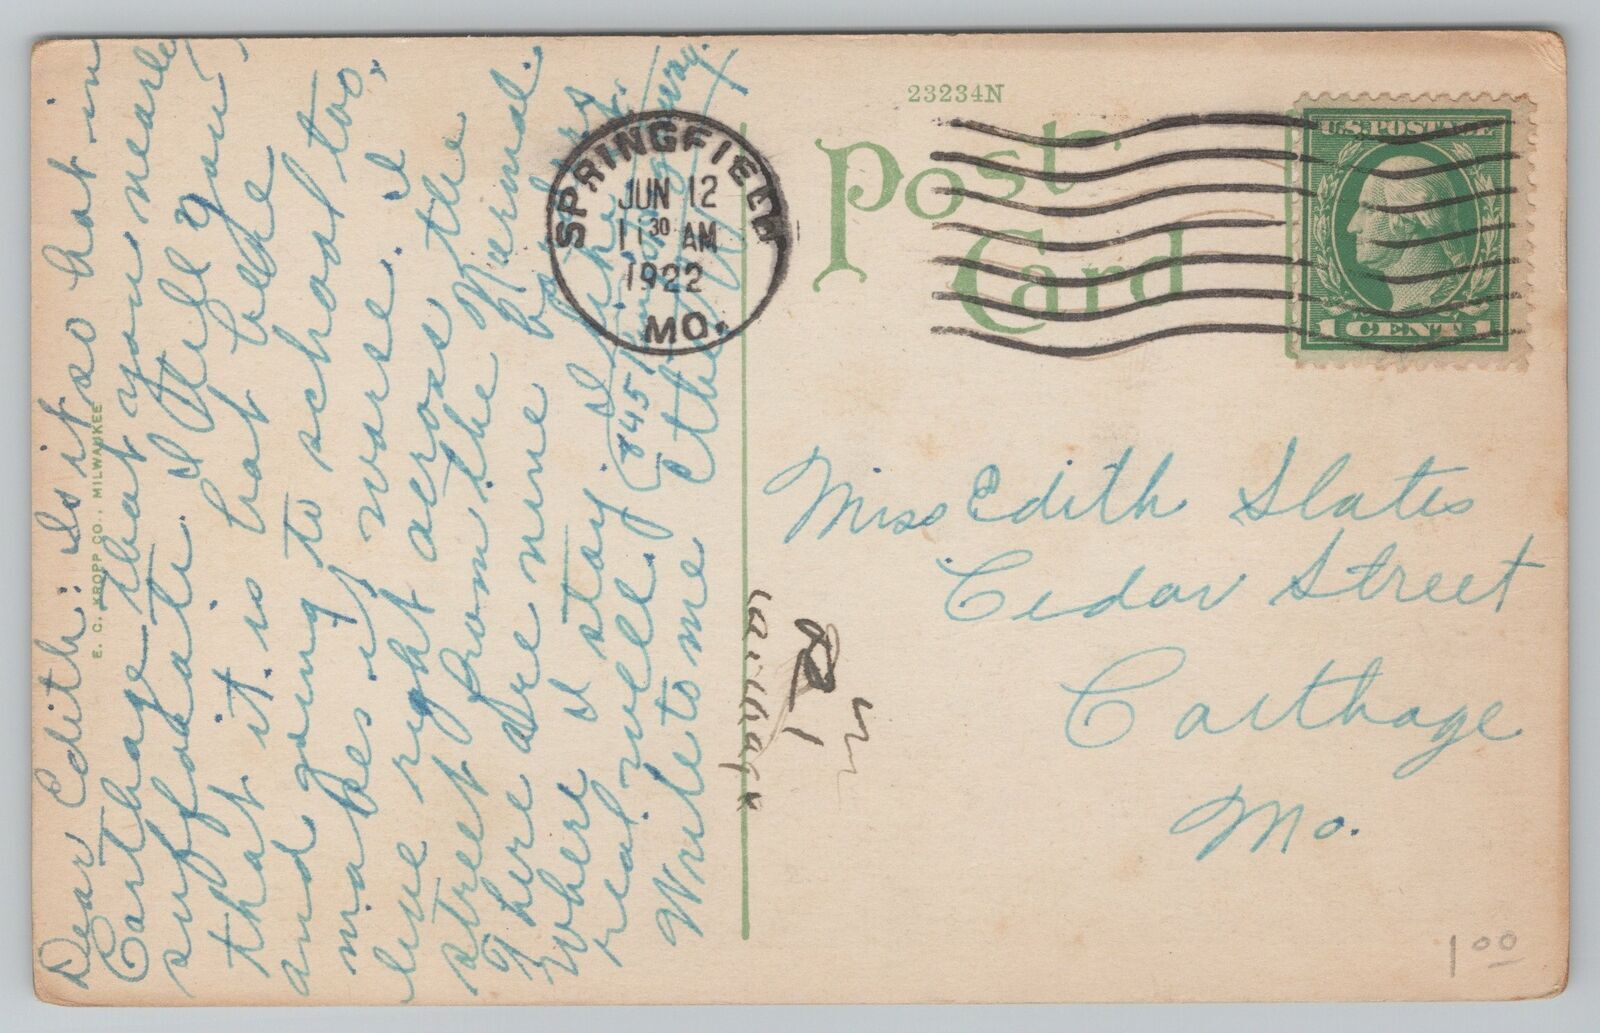 Dear Edith: Is it so hot in
Carthage that you nearly
suffocate. I tell you
that it is hot here
and going to school too,
makes it worse. I
live right across the
street from the Normal.
There are nine boarders
where I stay. I like it
real well.
Write to me
Ethel
E. C. KROPP CO., MILWAUKEE
SPRINGFIELD
JUN 12
11 30 AM
1922
MO.
23234N
Post
Card
U.S. POSTAGE
1 CENT 1
Miss Edith Slates
Cedar Street
Carthage
Mo.
Carthage
1 00